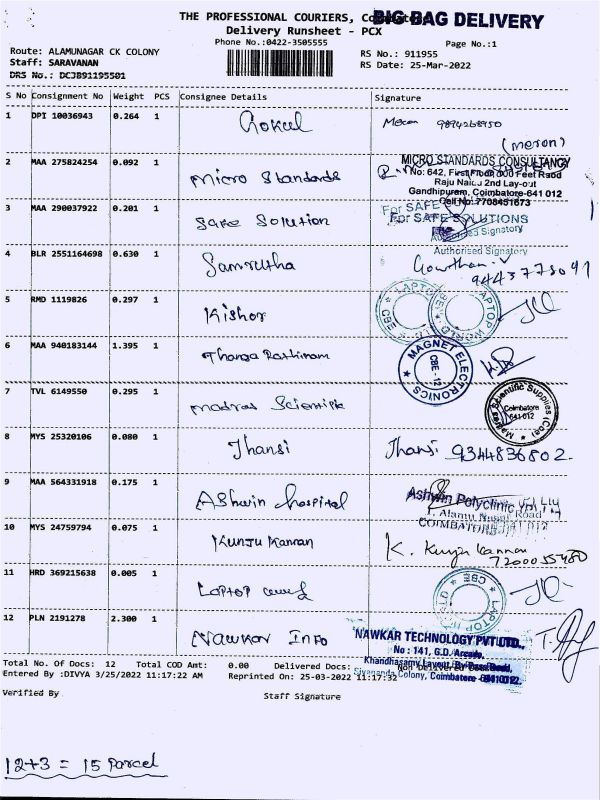 THE PROFESSIONAL COURIERS, BIG BAG DELIVERY
Delivery Runsheet - PCX
Phone No.:0422-3505555
Page No.:1
Route: ALAMUNAGAR CK COLONY
RS No.: 911955
Staff: SARAVANAN
RS Date: 25-Mar-2022
DRS No.: DCJB91195501
S No Consignment No Weight PCS Consignee Details Signature
1 DPI 10036943 0.264 1 Gokul
(meron)
2 MAA 275824254 0.092 1 Micro Standards
MICRO STANDARDS CONSULTANCY
No: 642, First Floor, 100 Feet Raod
Raju Naidu 2nd Lay-out
Gandhipuram, Coimbatore-641 012
Cell No: 7708451673
3 MAA 290037922 0.201 1 Safe Solution
For SAFE SOLUTIONS
Authorised Signatory
Authorised Signatory
4 BLR 2551164698 0.630 1 Samrutha Gowthan.V
9443778091
5 RMD 1119826 0.297 1 Kishor
LAPTOP WORLD CBE
6 MAA 940183144 1.395 1 Thanga Rathinam
MAGNET ELECTRONICS
CBE - 12
7 TVL 6149550 0.295 1 Madras Scientific
Scientific Supplies
Coimbatore
641 012
8 MYS 25320106 0.080 1 Jhansi Jhansi 9344836802
9 MAA 564331918 0.175 1 Ashwin hospital
Ashwin Polyclinic
COIMBATORE
10 MYS 24759794 0.075 1 Kunju Kannan K. Kunju Kannan
7200055480
11 HRD 369215638 0.005 1 Laptop
LAPTOP CBE
12 PLN 2191278 2.300 1 Nawkar Info
NAWKAR TECHNOLOGY PVT LTD.,
No : 141, G.D. Arcade,
Khandhasamy Layout,
Sivananda Colony, Coimbatore - 641 012.
Total No. Of Docs: 12 Total COD Amt: 0.00 Delivered Docs: Non Delivered Docs:
Entered By :DIVYA 3/25/2022 11:17:22 AM Reprinted On: 25-03-2022 11:17:32
Verified By Staff Signature
12+3 = 15 Parcel